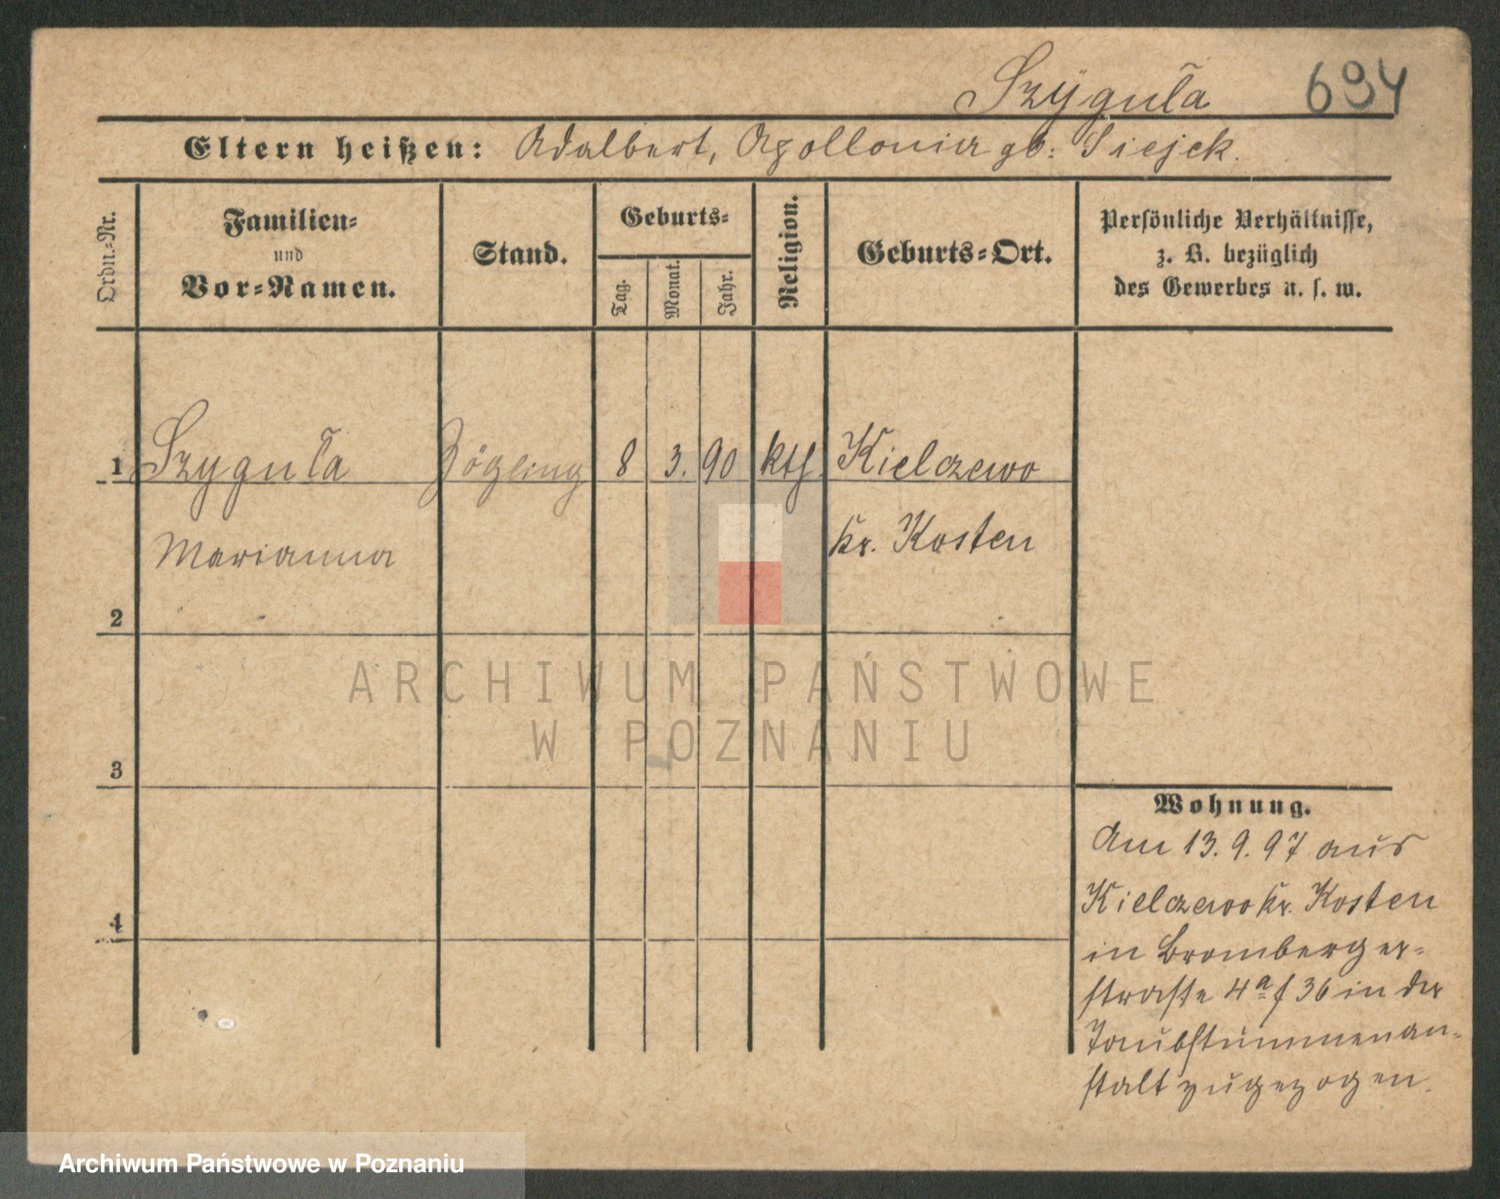 Szyguła 694
Eltern heißen: Adalbert, Apollonia gb: Siejek.
Ordn.-Nr.
Familien-
und
Vor-Namen.
Stand.
Geburts-
Tag.
Monat.
Jahr.
Religion.
Geburts-Ort.
Persönliche Verhältnisse,
z. B. bezüglich
des Gewerbes u. s. w.
1 Szyguła Zögling 8 3. 90 kth. Kielczewo
Marianna Kr. Kosten
2
3
4
Wohnung.
Am 13. 9. 97 aus
Kielczewo Kr. Kosten
in Bromberger-
straße 4a f 36 in der
Taubstummenan-
stalt zugezogen.
ARCHIWUM PAŃSTWOWE
W POZNANIU
Archiwum Państwowe w Poznaniu